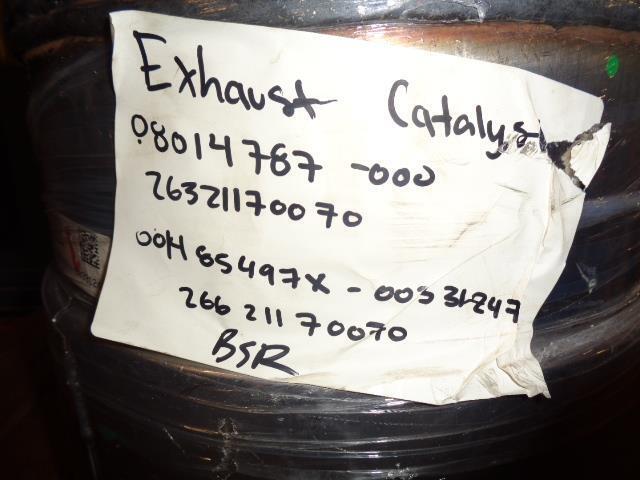 Exhaust Catalys
08014787-000
26321170070
00H85497X-00331247
26621170070
BSR